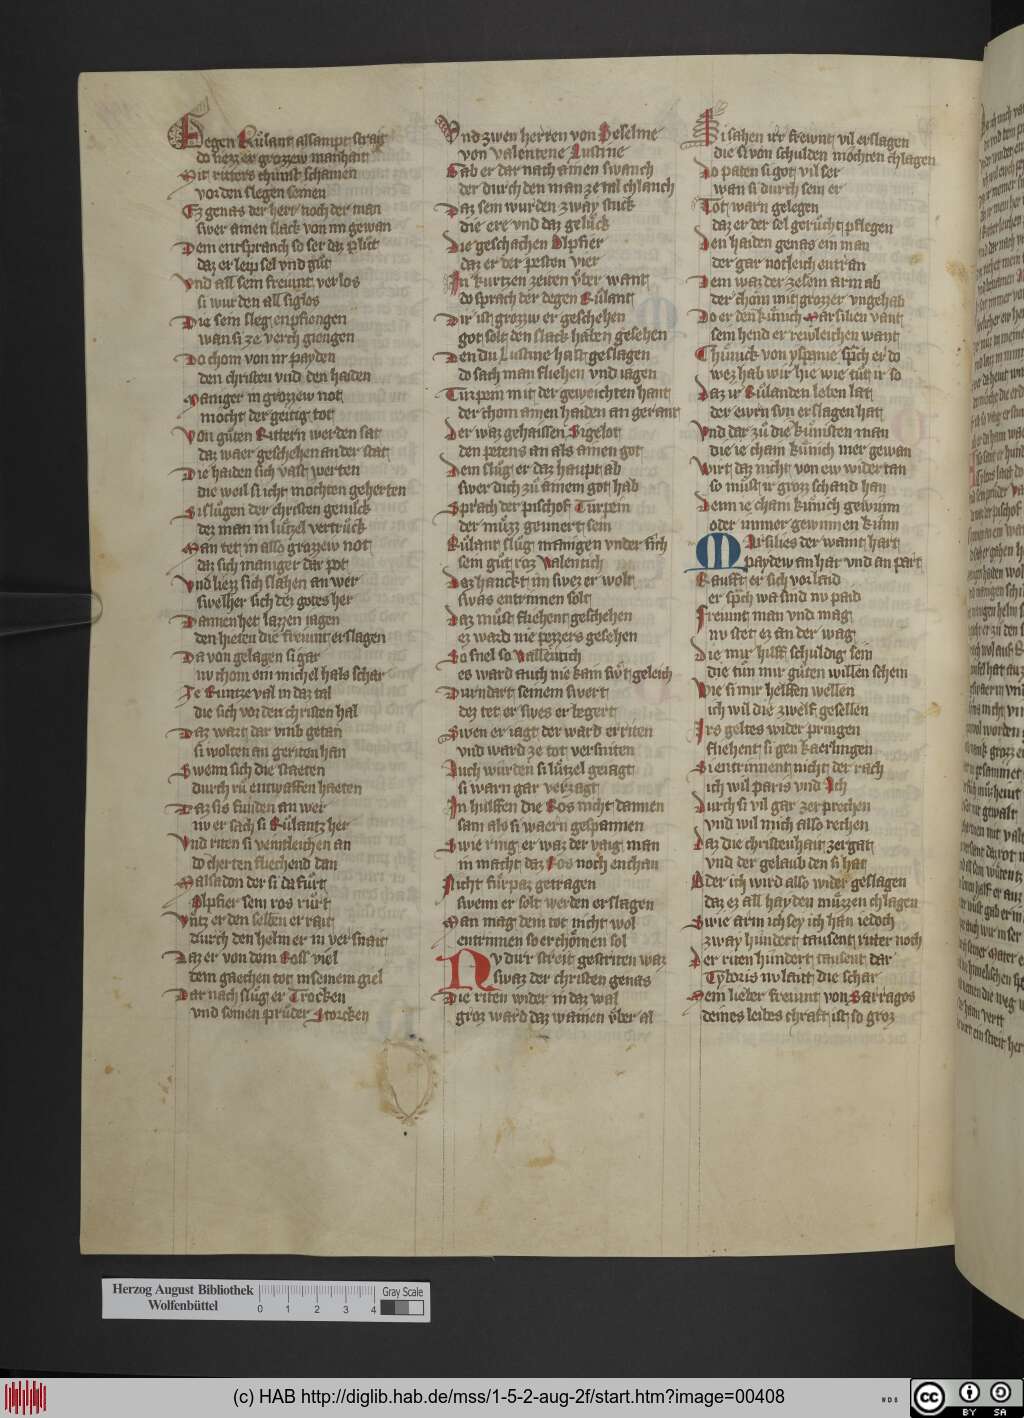 Gegen Rulant alsampt strait
do liezz er grozzew manhait
Mit ritters chunst schamen
vor den slegen seinen
Ez genas der herr noch der man
swer ainen slack von im gewan
Dem entspranch so ser daz plut
daz er leip sel vnd gut
Vnd all sein freunt verlos
si wurden all siglos
Die sein sleg enpfiengen
wan si ze verch giengen
Do chom von ir payden
den christen vnd den haiden
Maniger in grozzew not
mocht der geitig tot
Von guten Rittern werden sat
daz waer geschehen an der stat
Die haiden sich vast werten
die weil si icht mochten geherten
Si slugen der christen genuck
dez man in lutzel vertruck
Man tet in also grozzew not
daz sich maniger dar pot
Vnd liezz sich slahen an wer
swelher sich dez gotes her
Dannen het lazzen iagen
den hieten die freunt erslagen
Da von gelagen si gar
nv chom ein michel hals schar
Ie Kuntze val in daz tal
die sich vor den christen hal
Daz wart dar vmb getan
si wolten an geriten han
Swenn sich die staeten
durch ru entwaffen haeten
Daz sis funden an wer
nv er sach si Rulantz her
Vnd riten si veintleichen an
do cherten fliechend dan
Malsadon der si da furt
Olpfier sein ros rurt
Vntz er den selben er rait
durch den helm er in versnait
Daz er von dem Ross viel
dem gaechen tot in seinem giel
Dar nach slug er Trocken
vnd seinen pruder Storcken
Vnd zwen herren von Peselme
von valentene Justine
Gab er dar nach ainen swanch
der durch den man ze tal chlanch
Daz sein wurden zway stuck
die ere vnd daz geluck
Die geschachen Olpfier
daz er der pesten vier
In kurtzen zeiten vber want
do sprach der degen Rulant
Dir ist grozzw er geschehen
got solt den slack haben gesehen
Den du Justine hast geslagen
do sach man fliehen vnd iagen
Turpein mit der geweichten hant
der chom ainen haiden an gerant
Der waz gehaissen Sigelot
den petens an als ainen got
Dem slug er daz haupt ab
swer dich zu ainem got hab
Sprach der pischof Turpein
der muzz geunert sein
Rulant slug manigen vnder sich
sein gut roz Valentich
Daz hanckt im swez er wolt
swas entrinnen solt
Daz must fliehent geschehen
ez ward nie pezzers gesehen
So snel so Vallentich
es ward auch nie kain furt geleich
Durndart seinem swert
dez tet er swes er begert
Swen er iagt der ward erriten
vnd ward ze tot versniten
Auch wurden si lutzel geiagt
si warn gar verzagt
In hulffen die Ros nicht dannen
sam als si waern gespannen
Swie ring er waz der vaig man
in macht daz Ros noch enchan
Nicht furpaz getragen
swenn er solt werden erslagen
Man mag dem tot nicht wol
entrinnen so er chomen sol
Nv durr streit gestriten waz
swaz der christen genas
Die riten wider in daz wal
groz ward daz wainen vber al
Si sahen irr frewnt vil erslagen
die si von schulden mochten chlagen
Do paten si got vil ser
wan si durch sein er
Tot warn gelegen
daz er der sel gerucht pflegen
Den haiden genas ein man
der gar notleich entran
Dem waz der zesem arm ab
der chom mit grozzer vngehab
Do er den kunich Marsilien vant
sein hend er rewleichen want
Chunick von yspanie sprch er do
wez hab wir hie wie tut ir so
Daz ir Rulanden leben lat
der ewrn svn erslagen hat
Vnd dar zu die kunsten man
die ie cham kunich mer gewan
Wirt daz nicht von ew wider tan
so must ir groz schand han
Denn ie cham kunich gewinn
oder immer gewinnen kunn
Marsilies der waint hart
paydew an har vnd an part
Raufft er sich vor laid
er sprch wa sind nv paid
Freunt man vnd mag
nv stet ez an der wag
Die mir hilff schuldig sein
die tun mir guten willen schein
Wie si mir helffen wellen
ich wil die zwelf gesellen
Irs geltes wider pringen
fliehent si gen kaerlingen
Si entrinnent nicht der rach
ich wil paris vnd Ach
Durch si vil gar zerprechen
vnd wil mich also rechen
Daz die christenhait zergat
vnd der gelaub den si hat
Oder ich wird also wider geslagen
daz ez all hayden muzzen chlagen
Swie arm ich sey ich han iedoch
zway hundert tausent ritter noch
Der riten hundert tausent dar
Tyboris nv laut die schar
Mein lieber freunt von Sarragos
deines leibes chraft ist so groz
Herzog August Bibliothek
Wolfenbüttel
0 1 2 3 4
Gray Scale
(c) HAB http://diglib.hab.de/mss/1-5-2-aug-2f/start.htm?image=00408
WDB
cc BY SA